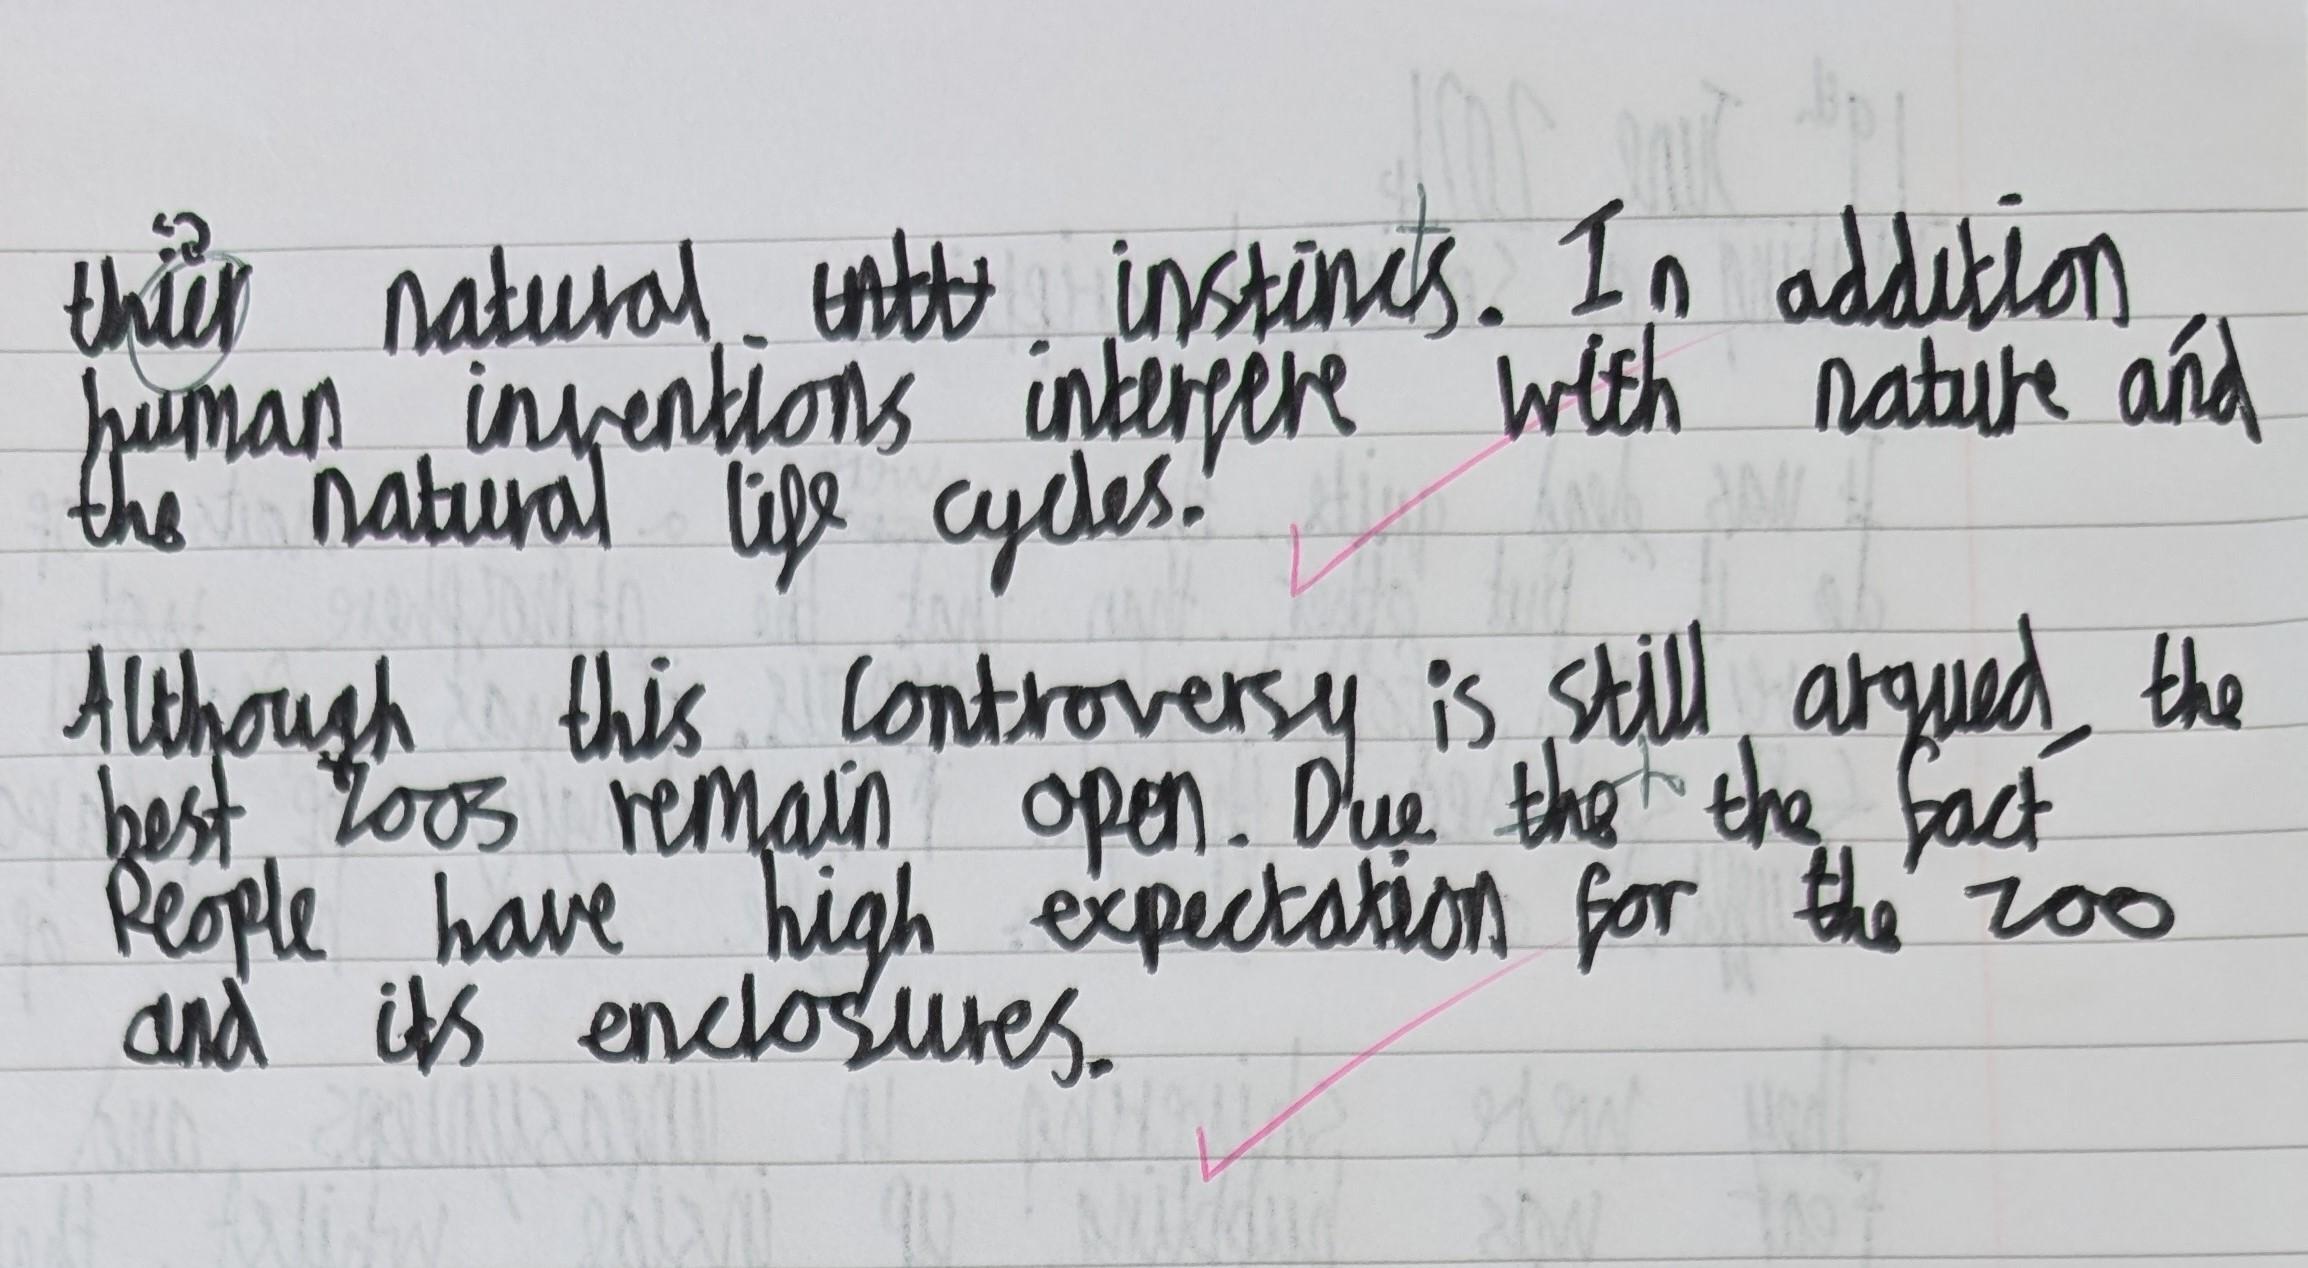 thier natural instincts. In addition
human inventions interfere with nature and
the natural life cycles.
Although this controversy is still argued, the
best zoos remain open. Due the to the fact
People have high expectation for the zoo
and its enclosures.